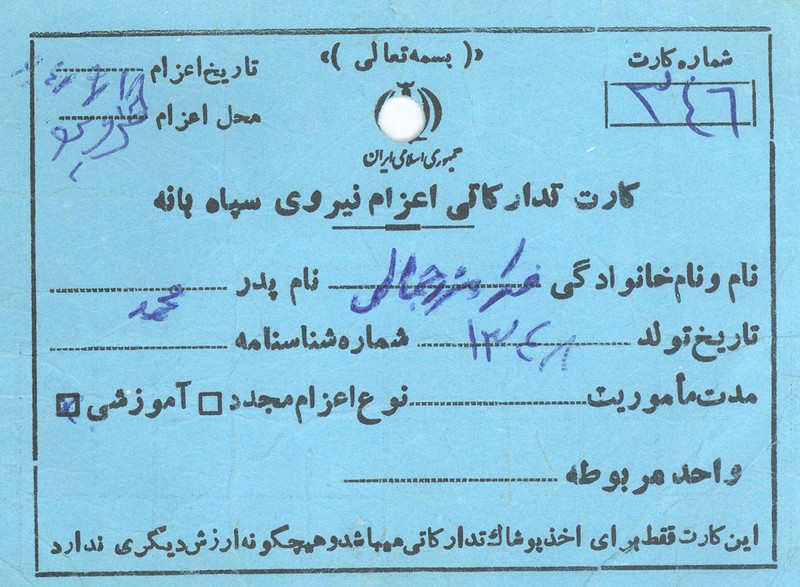 «( بسمه تعالی )»
شماره کارت
۳۴۶
تاریخ اعزام
محل اعزام
جمهوری اسلامی ایران
کارت تدارکاتی اعزام نیروی سپاه بانه
نام و نام خانوادگی فرامرز جمالی نام پدر محمد
تاریخ تولد ۱۳۴۸ شماره شناسنامه
مدت مأموریت نوع اعزام مجدد □ آموزشی ☒
واحد مربوطه
این کارت فقط برای اخذ پوشاك تدارکاتی میباشد و هیچگونه ارزش دیگری ندارد